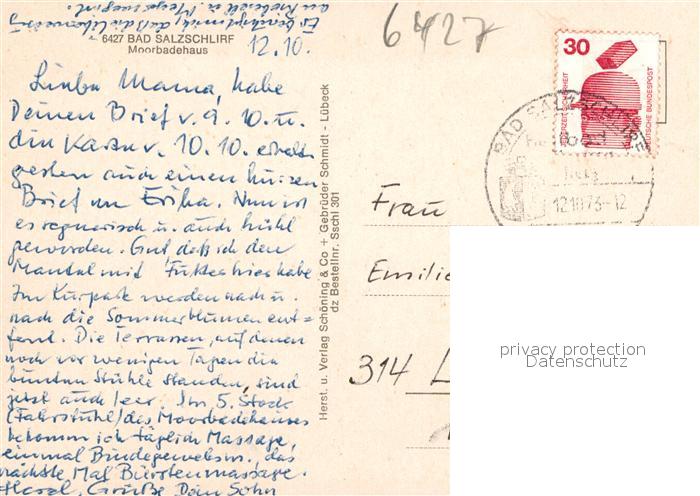 12.10.
6427 BAD SALZSCHLIRF
Moorbadehaus
Liebe Mama, habe
Deinen Brief v. 9.10. u.
die Karte v. 10.10. erhalten
gestern auch einen kurzen
Brief von Erika. Nun ist
es regnerisch u. auch kühl
geworden. Gut daß ich den
Mantel mit Futter hier habe
Im Kurpark werden nach u.
nach die Sommerblumen ent=
fernt. Die Terrassen, auf denen
noch vor wenigen Tagen die
bunten Stühle standen, sind
jetzt auch leer. Im 5. Stock
(Fahrstuhl) des Moorbadehauses
bekomme ich täglich Massage,
einmal Bindegewebsm. das
nächste Mal Bürstenmassage.
Herzl. Grüße Dein Sohn
Herst. u. Verlag Schöning & Co + Gebrüder Schmidt - Lübeck
dz Bestellnr. Sschl 301
6427
30
JEDERZEIT SICHERHEIT
DEUTSCHE BUNDESPOST
BAD SALZSCHLIRF
6427
12.10.73-12
Frau
Emilie
314 L
privacy protection
Datenschutz